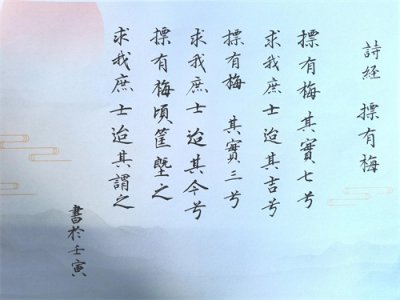 詩經 摽有梅
摽有梅其實七兮
求我庶士迨其吉兮
摽有梅 其實三兮
求我庶士迨其今兮
摽有梅頃筐塈之
求我庶士迨其謂之
書於壬寅